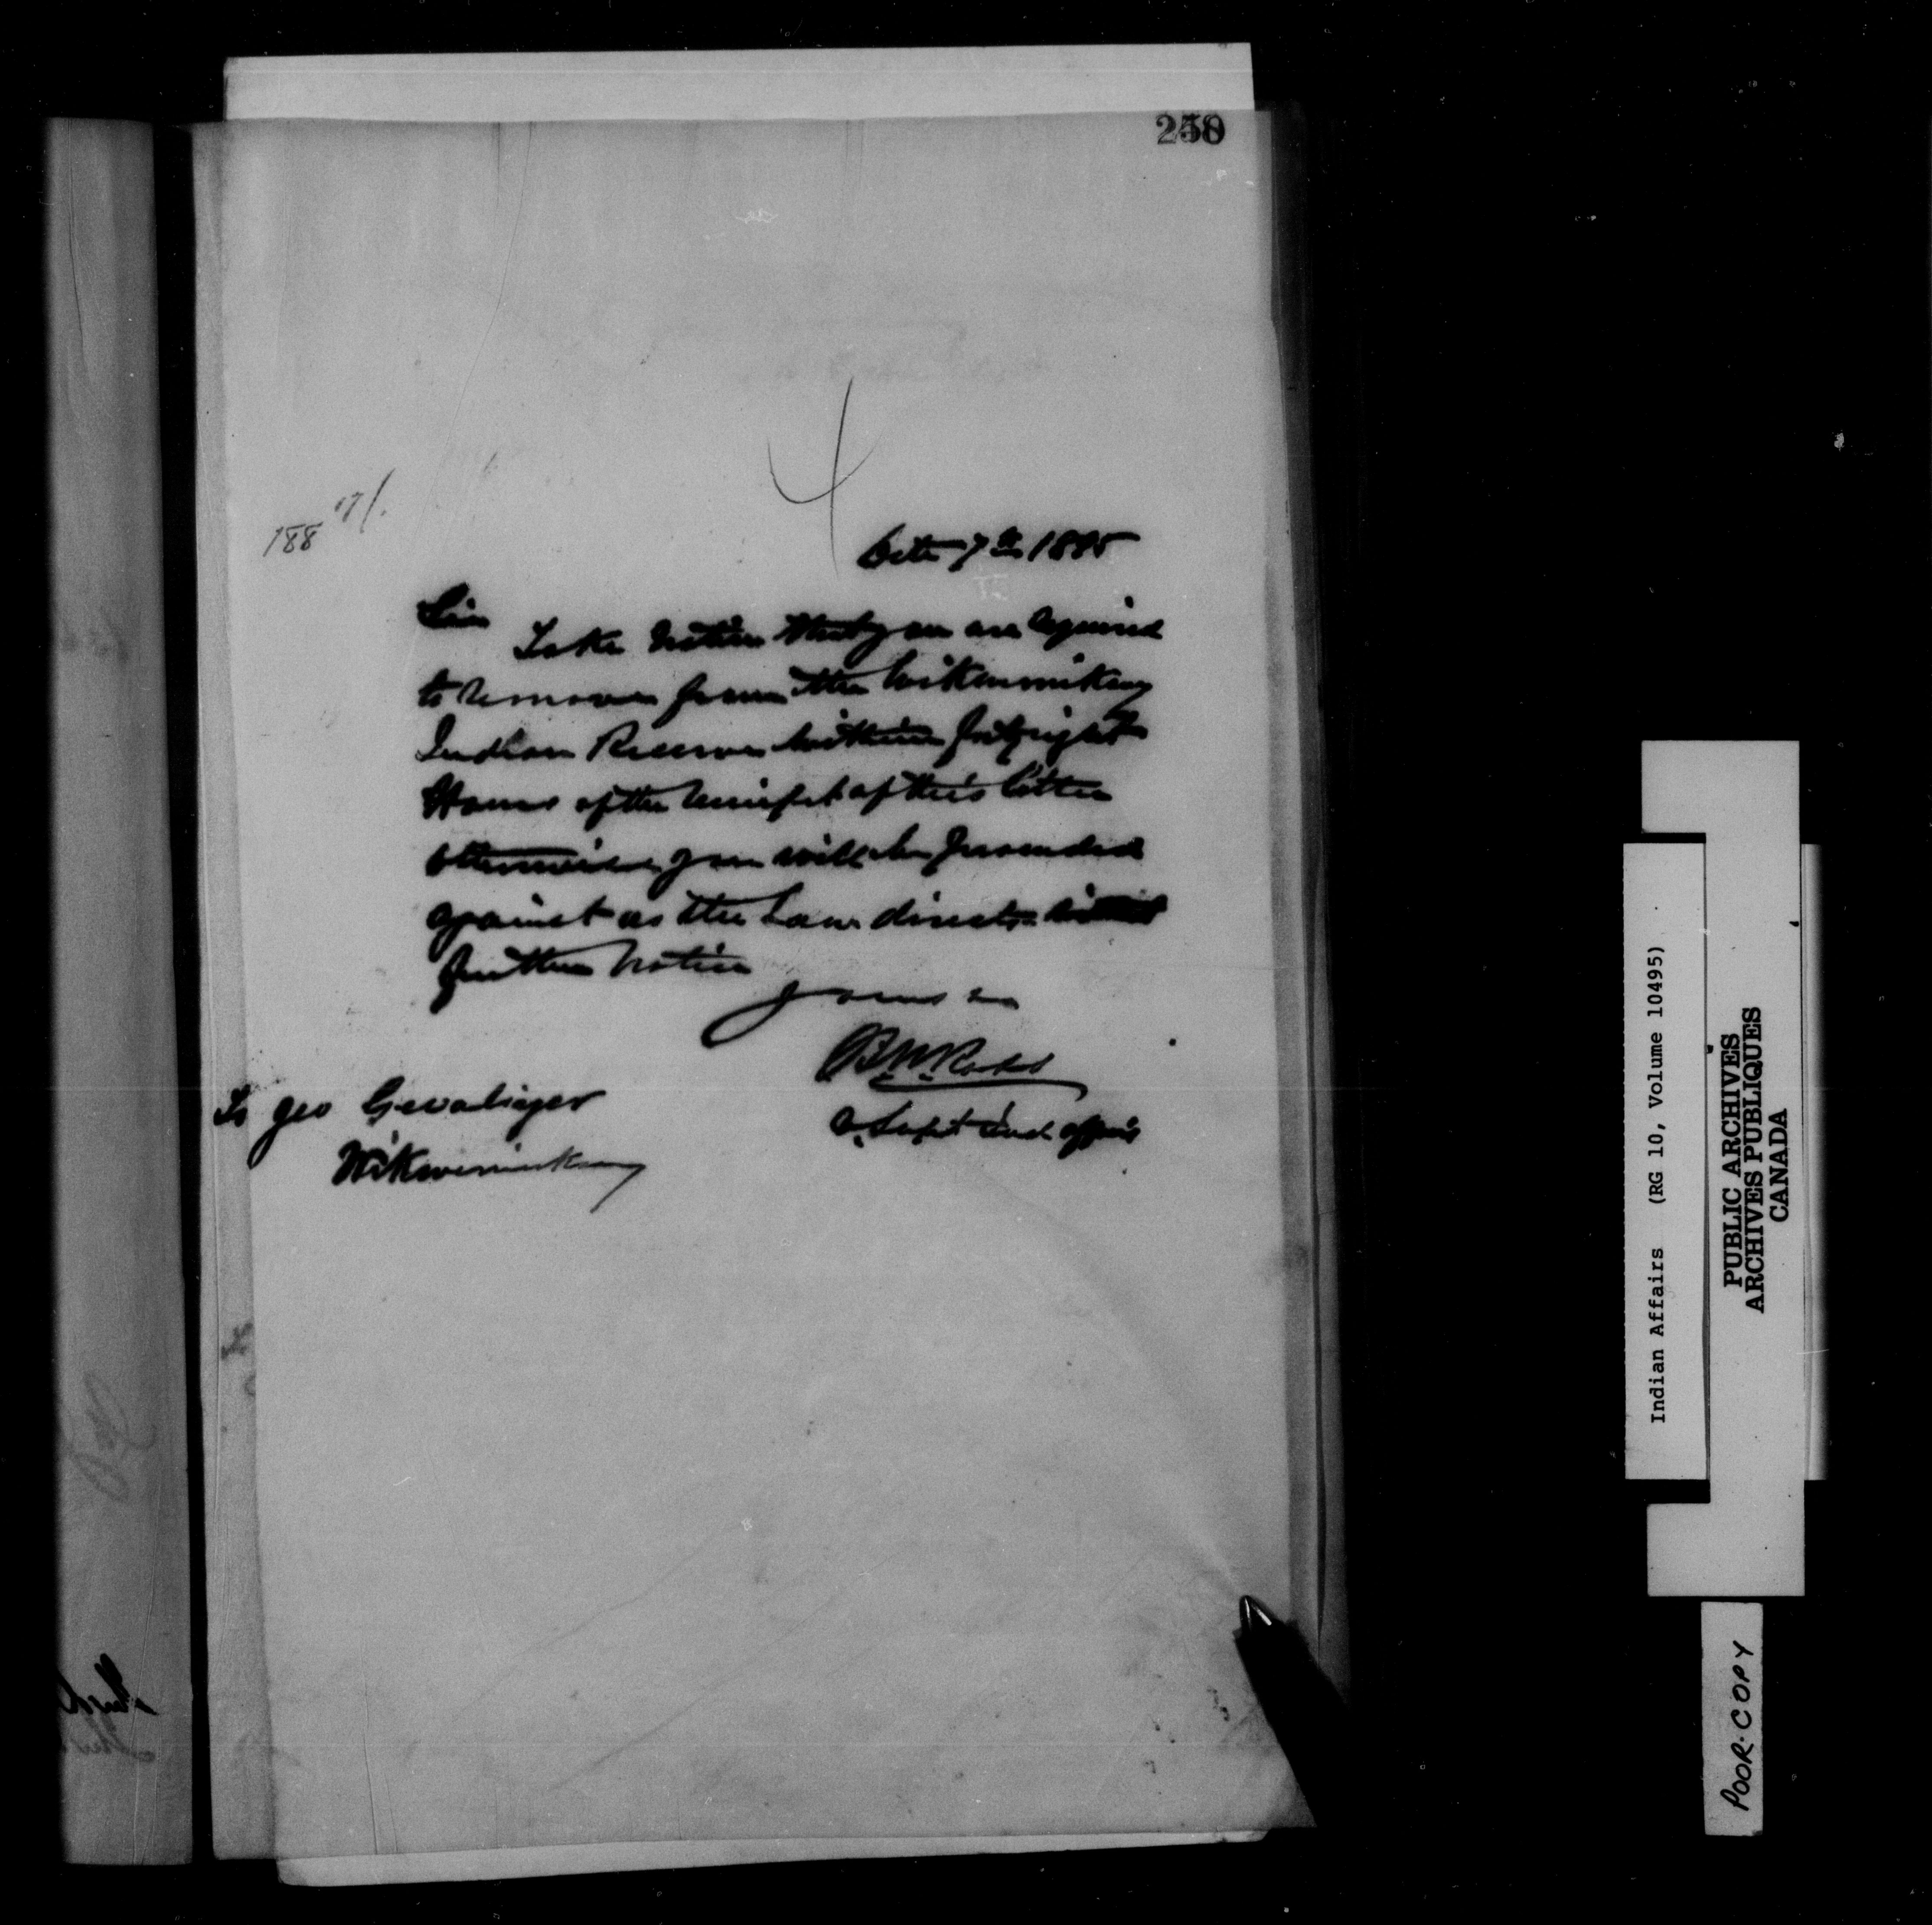 250
188 17/.
4
Octr 7th 1885
Sir
Take Notice that you are required
to remove from the Wikwemikong
Indian Reserve within forty eight
Hours of the receipt of this letter
otherwise you will be proceeded
against as the Law directs without
further Notice
Yours &c
B W Ross
a. Supt Ind affairs
To Geo
Wikwemikong
Indian Affairs (RG 10, Volume 10495)
PUBLIC ARCHIVES
ARCHIVES PUBLIQUES
CANADA
POOR COPY